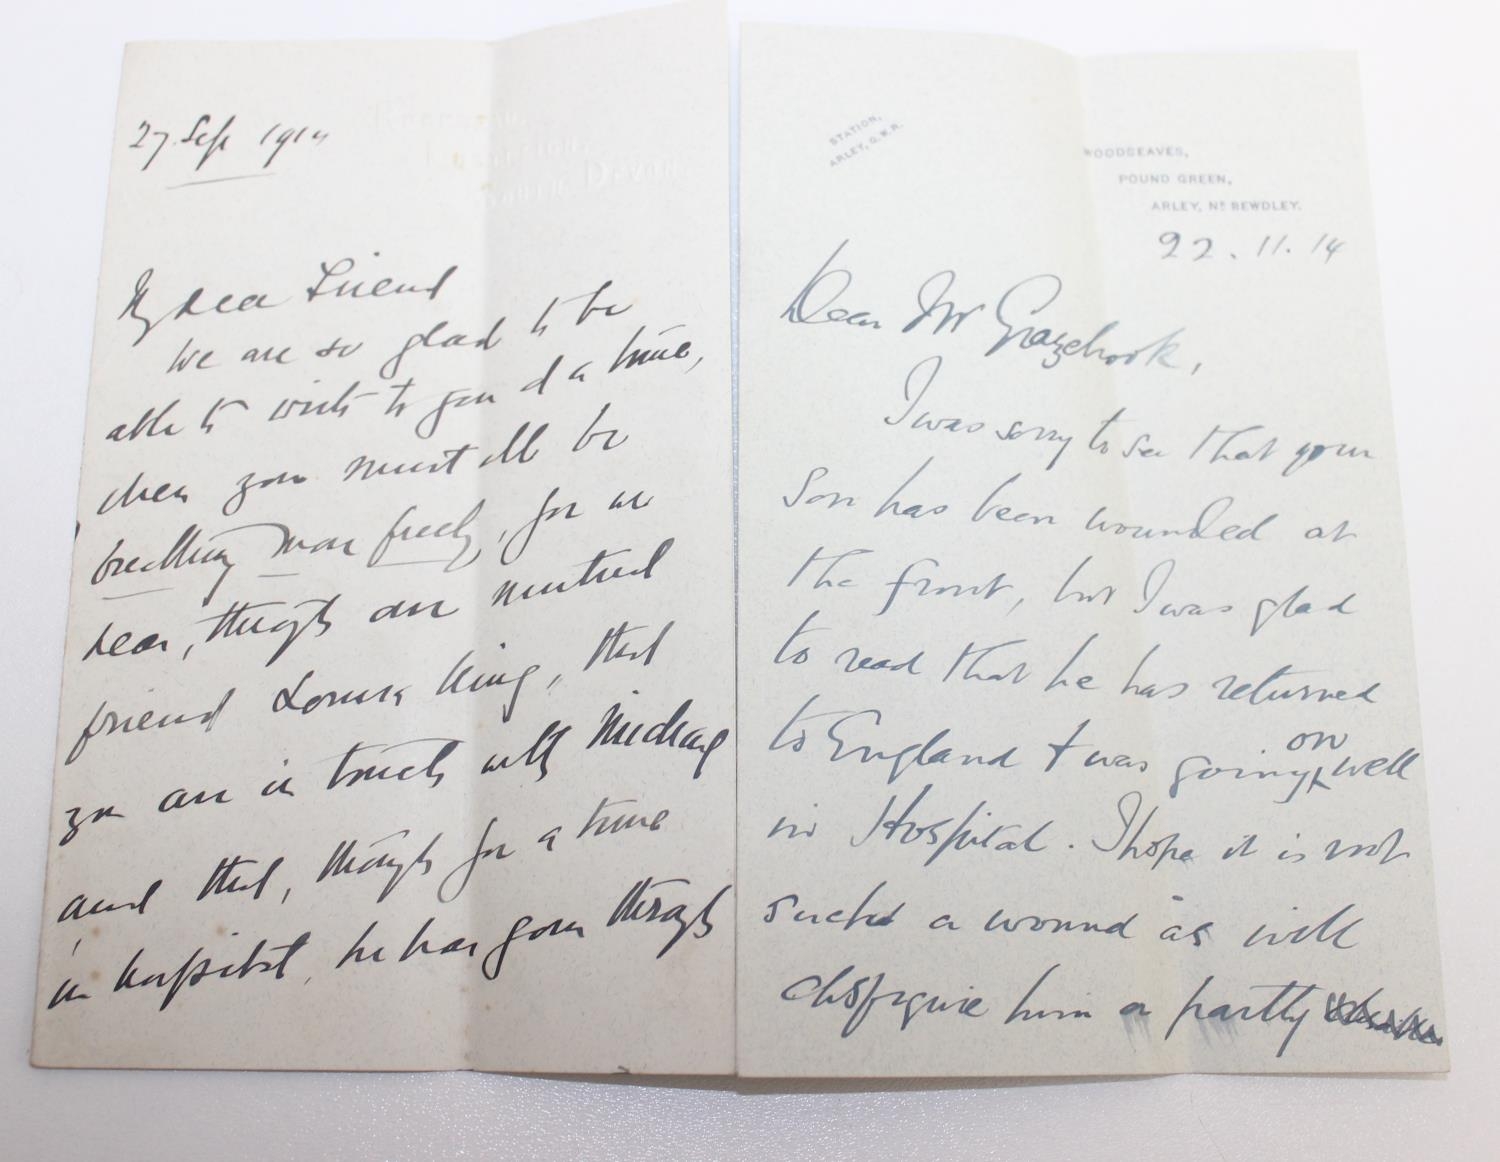 27 Sep 1914
My dear Friend
We are so glad to be
able to write to you at a time,
when you must all be
breathing more freely, for we
hear, through our mutual
friend Louisa King, that
you are in touch with
and that, though for a time
in hospital, he has gone through
STATION,
ARLEY, G.W.R.
WOODSEAVES,
POUND GREEN,
ARLEY, Nr BEWDLEY.
22.11.14
Dear Mr Grazebrook,
I was sorry to see that your
son has been wounded at
the front, but I was glad
to read that he has returned
to England & was going on well
in Hospital. I hope it is not
such a wound as will
disfigure him or partly